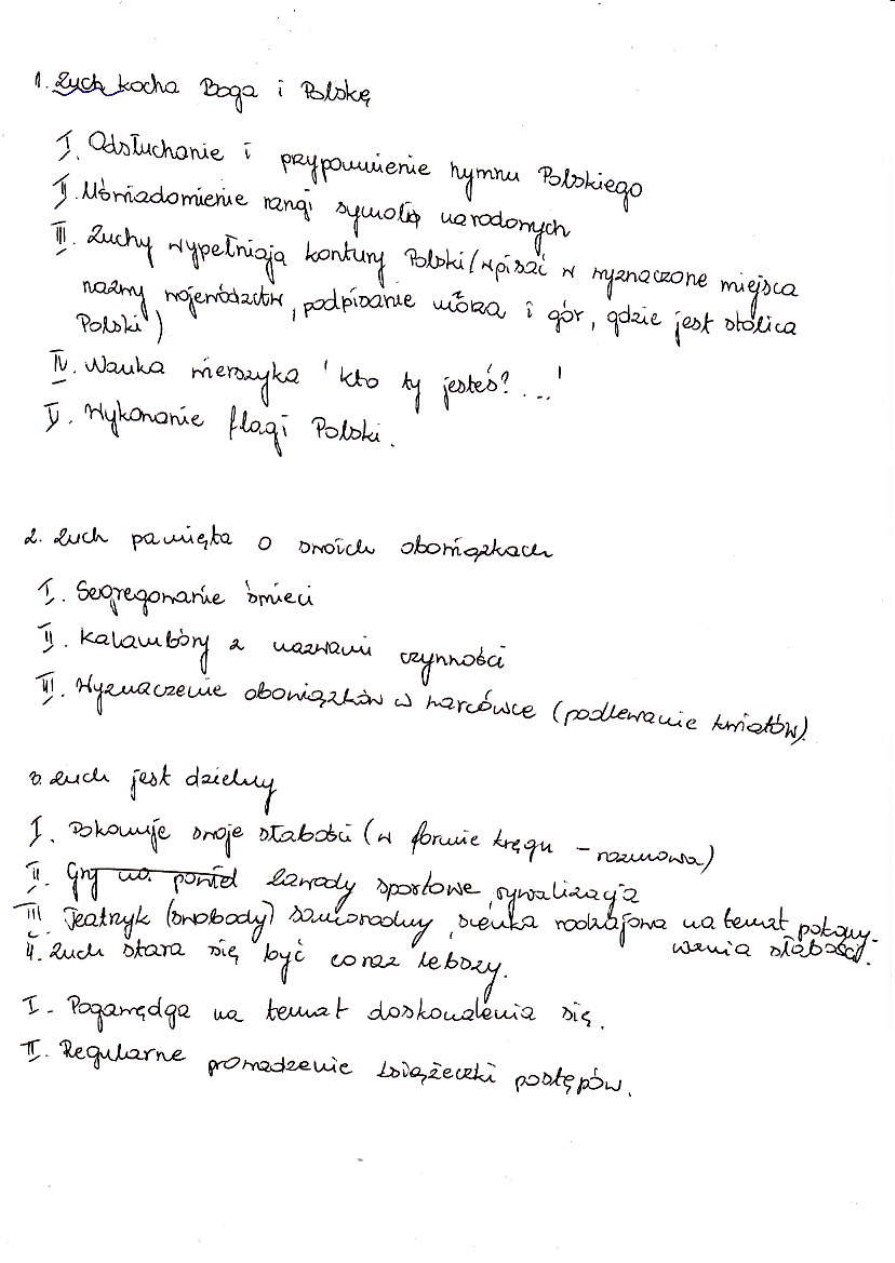 1. Zuch kocha Boga i Polskę
I. Odsłuchanie i przypomnienie hymnu Polskiego
II. Uświadomienie rangi symoli narodowych
III. Zuchy wypełniają kontury Polski (wpisać w wyznaczone miejsca
nazwy województw, podpisanie móża i gór, gdzie jest stolica
Polski)
IV. Nauka wierszyka 'kto ty jesteś?...'
V. Wykonanie flagi Polski.
2. Zuch pamięta o swoich obowiązkach
I. Segregowanie śmieci
II. Kalambóry z nazwami czynności
III. Wyznaczenie obowiązków w harcówce (podlewanie kwiatów).
3. Zuch jest dzielny
I. Pokonuje swoje słabości (w formie kręgu - rozmowa)
II. Gry na powiet zawody sportowe, rywalizacja
III. Teatrzyk (swobody) samorodny, scenka rodzajowa na temat pokony-
wania słabości.
4. Zuch stara się być coraz lebszy.
I. Pogawędga na temat doskonalenia się.
II. Regularne prowadzenie książeczki postępów.